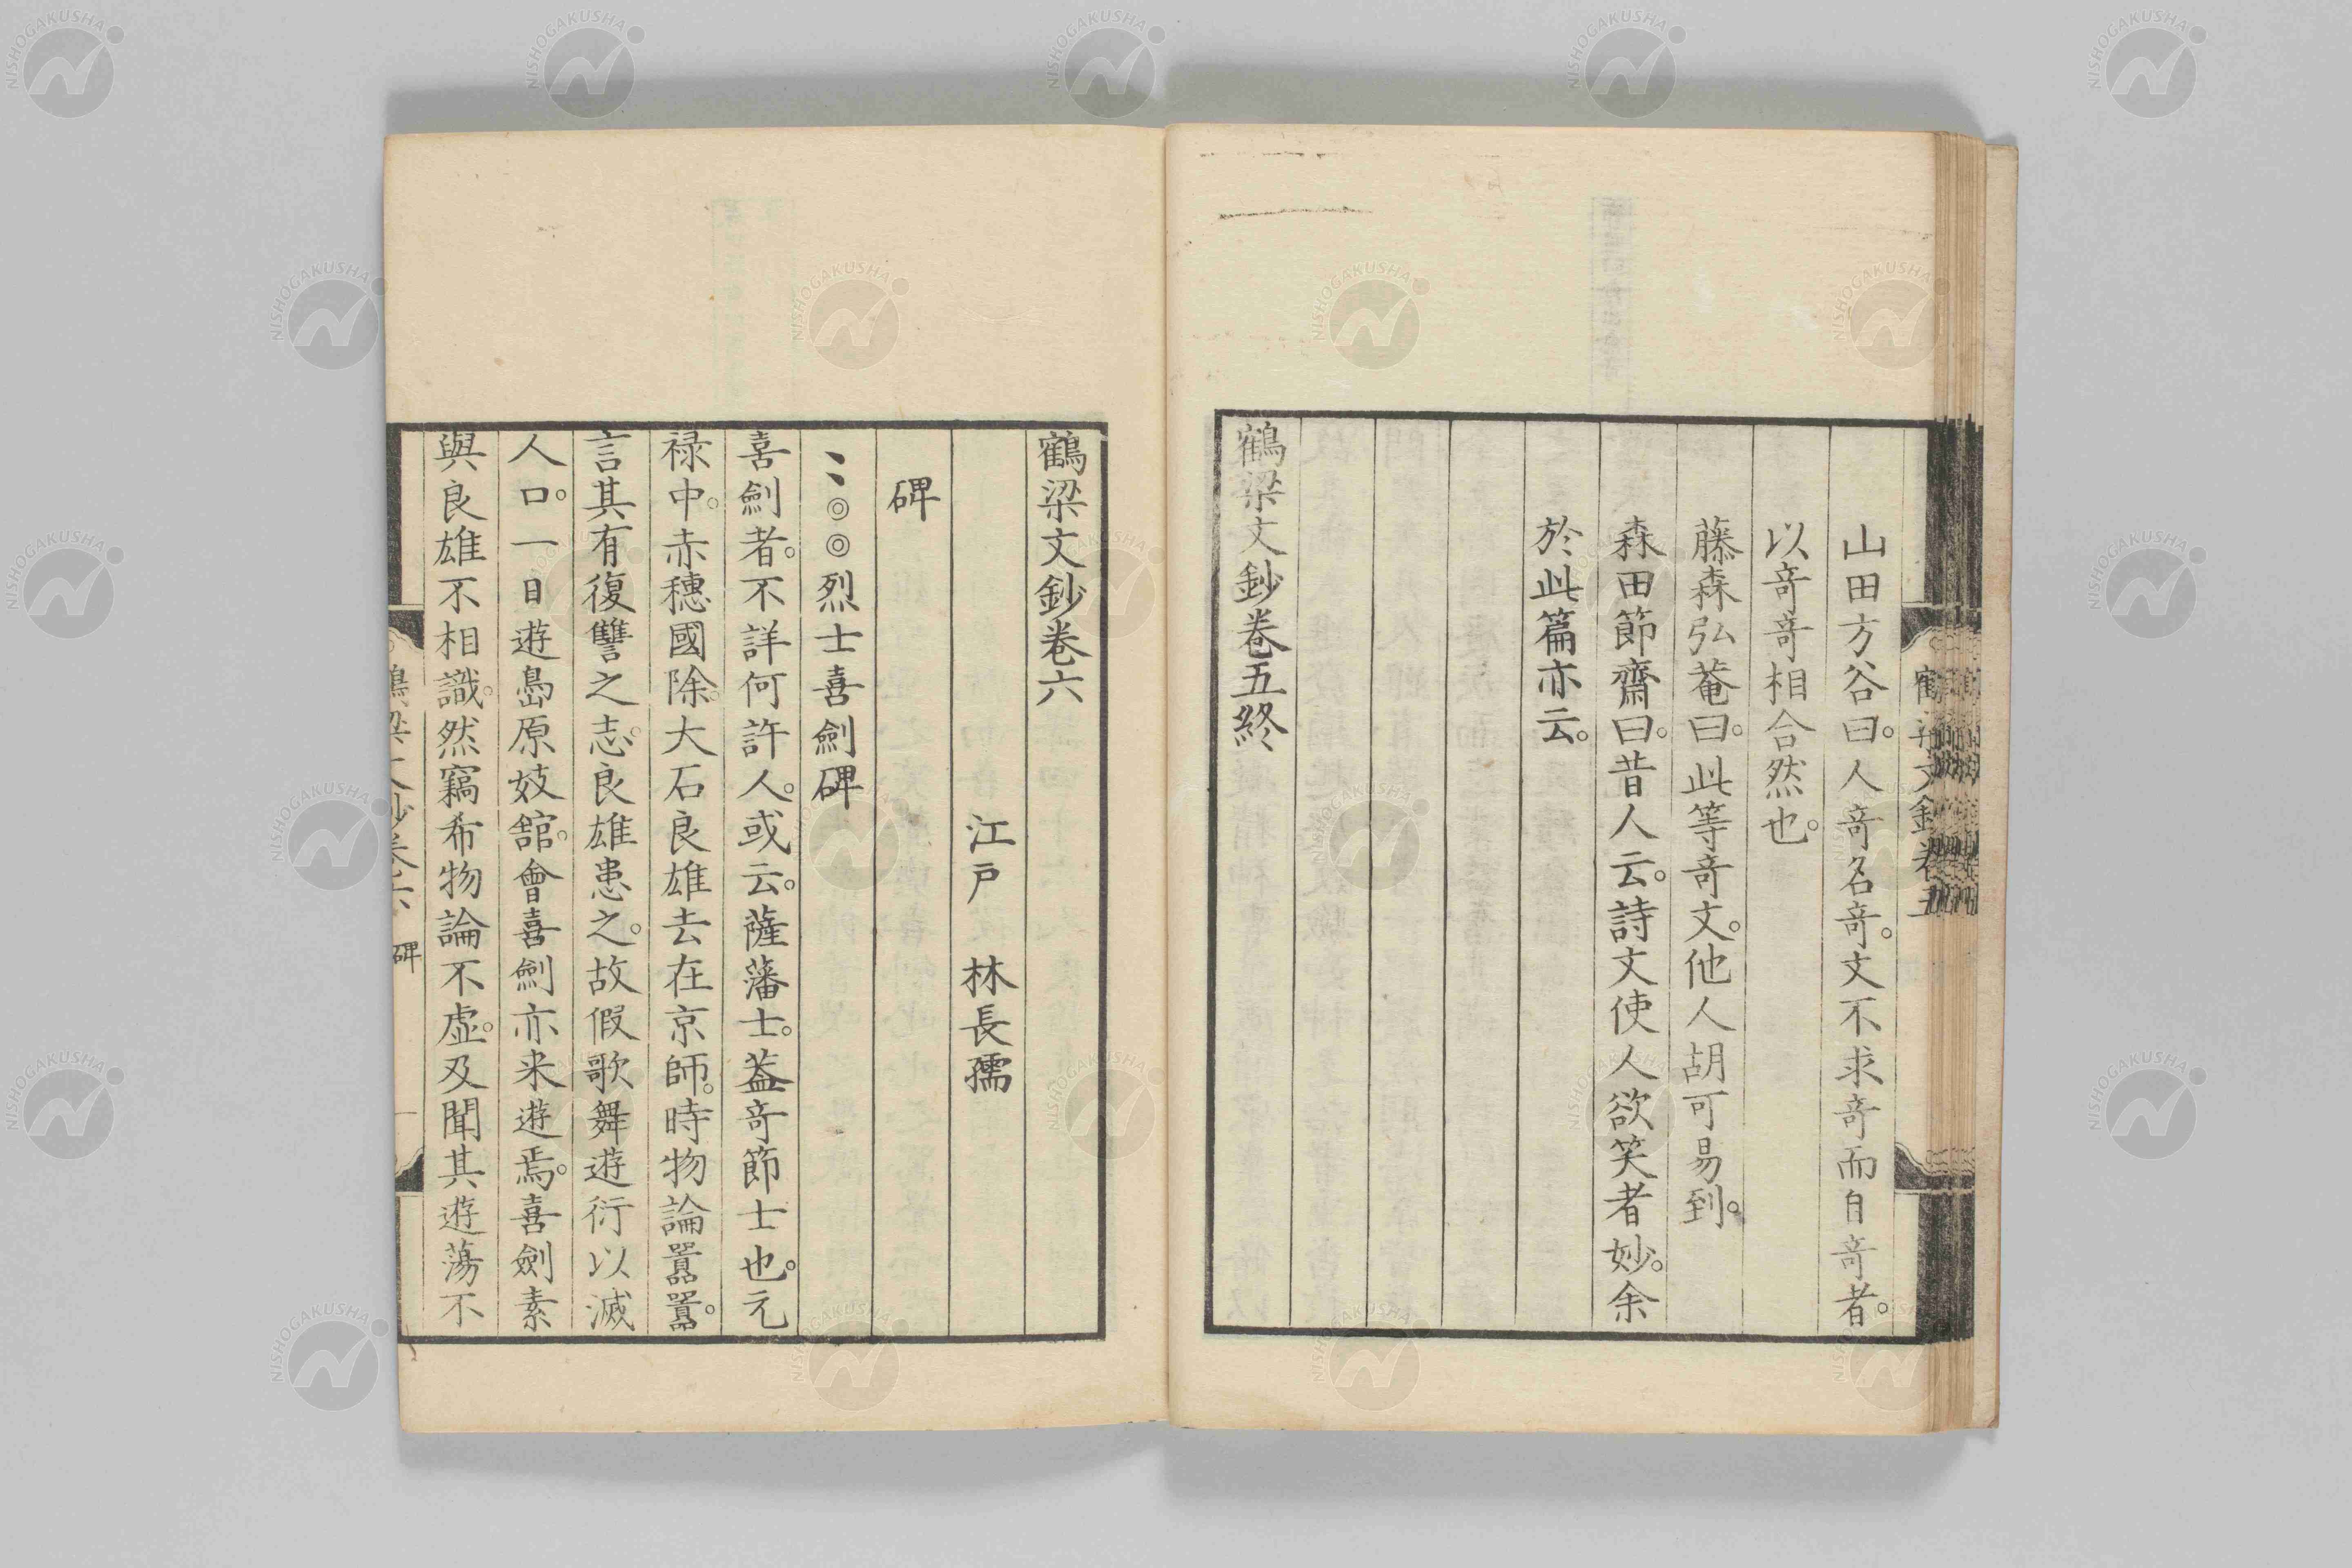 山田方谷曰。人竒名竒。文不求竒而自竒者。
以竒竒相合然也。
藤森弘菴曰。此等竒文。他人胡可易到。
森田節齋曰。昔人云。詩文使人欲笑者妙。余
於此篇亦云。
鶴梁文鈔卷五終
鶴梁文鈔卷六
江戸 林長孺
碑
烈士喜劍碑
喜劍者。不詳何許人。或云。薩藩士。葢竒節士也。元
禄中。赤穗國除。大石良雄去在京師。時物論囂囂。
言其有復讐之志。良雄患之。故假歌舞遊衍以滅
人口。一日遊島原妓舘。會喜劍亦来遊焉。喜劍素
與良雄不相識。然竊希物論不虛。及聞其遊蕩不
鶴梁文鈔卷六 碑 一
NISHOGAKUSHA